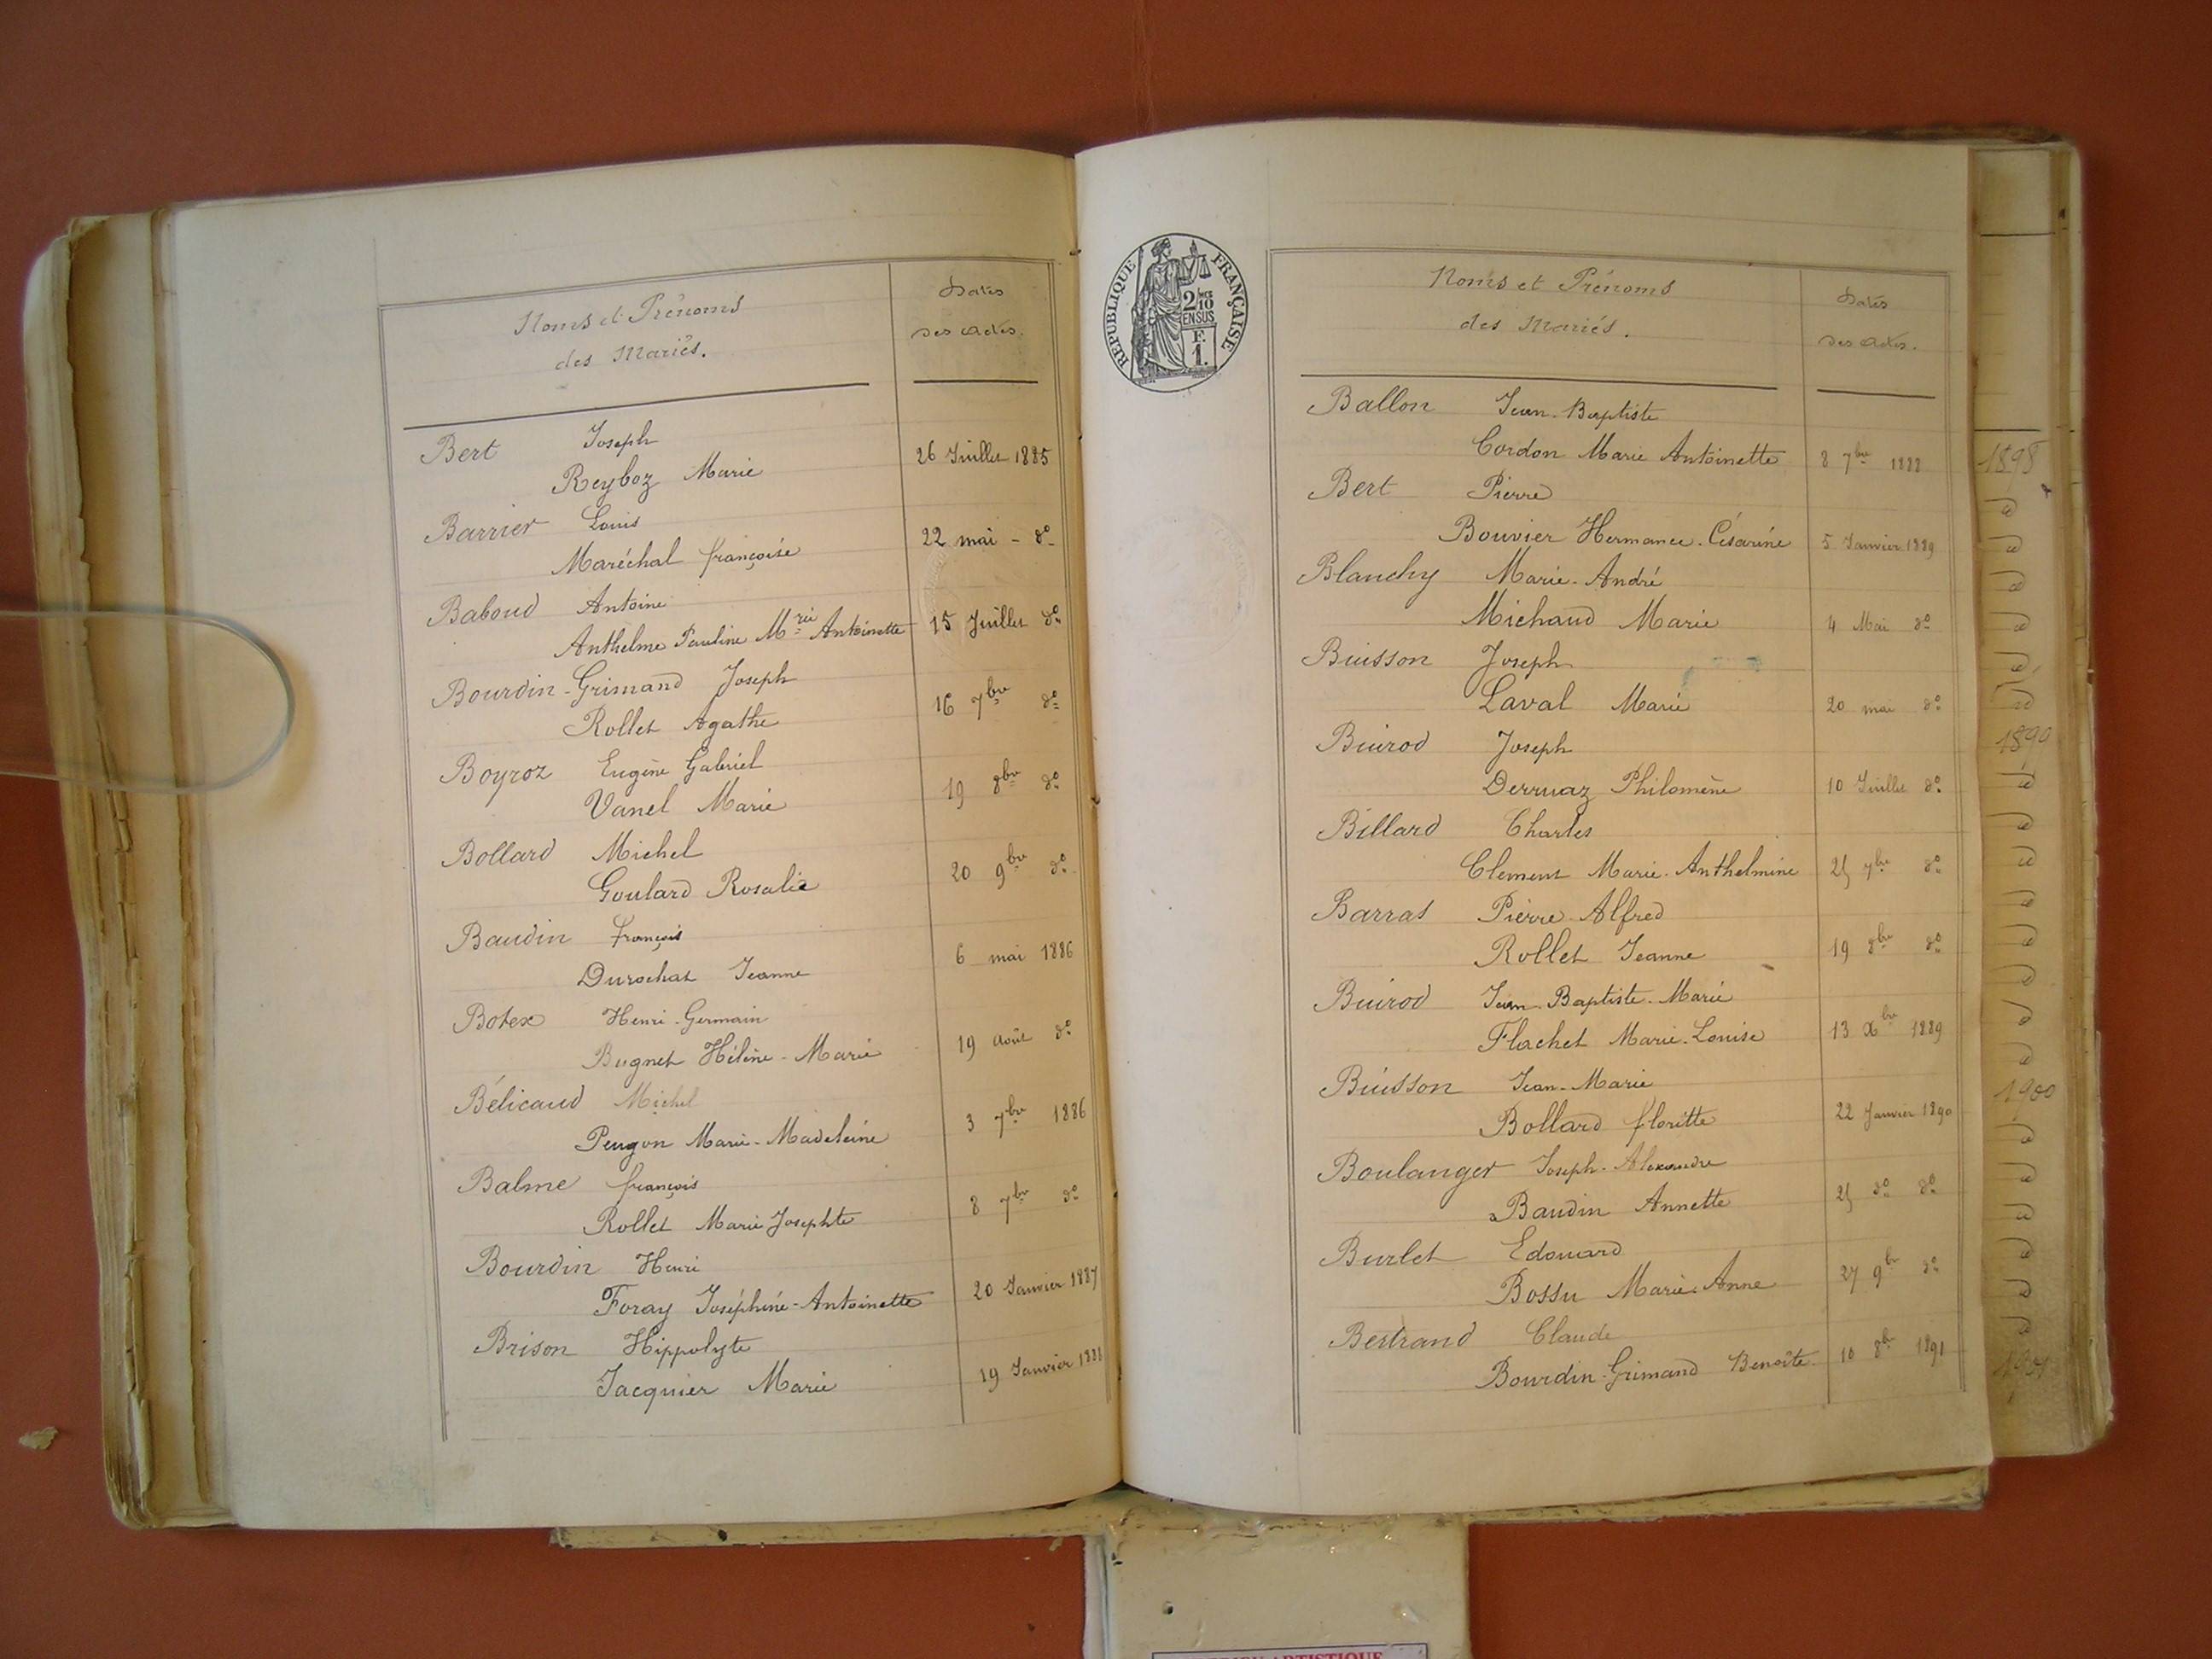 Noms et Prénoms
des Mariés.
Dates
des actes.
Bert Joseph
Reyboz Marie
26 Juillet 1885
Barrier Louis
Maréchal françoise
22 mai - do-
Baboud Antoine
Anthelme Pauline Mrie Antoinette
15 Juillet do
Bourdin-Grimand Joseph
Rollet Agathe
16 7bre do
Boyroz Eugène Gabriel
Vanel Marie
19 8bre do
Bollard Michel
Goulard Rosalie
20 9bre do
Baudin françois
Durochat Jeanne
6 mai 1886
Botex Henri-Germain
Bugnet Hélène-Marie
19 Août do
Bélicaud Michel
Peugon Marie-Madeleine
3 7bre 1886
Balme françois
Rollet Marie Josephte
8 7bre do
Bourdin Henri
Foray Joséphine-Antoinette
20 Janvier 1887
Brison Hippolyte
Jacquier Marie
19 Janvier 1888
RÉPUBLIQUE FRANÇAISE
2/10
EN SUS
F.
1.
Noms et Prénoms
des Mariés.
Dates
des actes.
Ballon Jean-Baptiste
Cordon Marie Antoinette
8 7bre 1888
Bert Pierre
Bouvier Hermance-Césarine
5 Janvier 1889
Blanchy Marie-André
Michaud Marie
4 Mai do
Buisson Joseph
Laval Marie
20 mai do
Buirod Joseph
Derruaz Philomène
10 Juillet do
Billard Charles
Clement Marie-Anthelmine
25 7bre do
Barras Pierre-Alfred
Rollet Jeanne
19 8bre do
Buirod Jean-Baptiste-Marie
Flachet Marie-Louise
13 Xbre 1889
Buisson Jean-Marie
Bollard floritte
22 Janvier 1890
Boulanger Joseph-Alexandre
Baudin Annette
25 do do
Burlet Edouard
Bossu Marie-Anne
27 9bre do
Bertrand Claude
Bourdin-Grimand Benoîte
10 8bre 1891
1898
1900